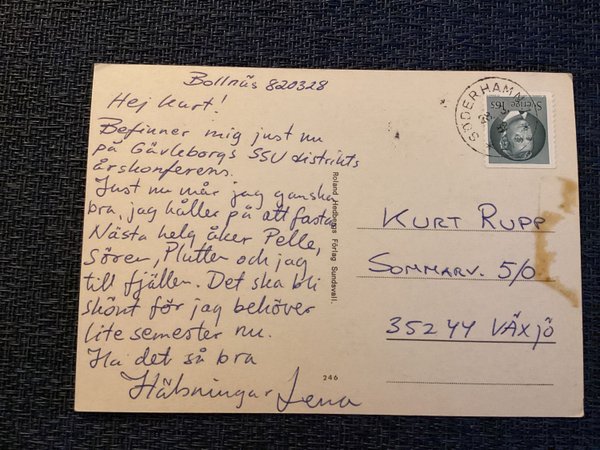 Bollnäs 820328
Hej Kurt!
Befinner mig just nu
på Gävleborgs SSU distrikts
årskonferens.
Just nu mår jag ganska
bra, jag håller på att fasta.
Nästa helg åker Pelle,
Sören, Plutten och jag
till fjällen. Det ska bli
skönt för jag behöver
lite semester nu.
Ha det så bra
Hälsningar Lena
Roland Hedbergs Förlag Sundsvall.
246
SÖDERHAMN
Sverige 165
KURT RUPP
SOMMARV. 5/0
35244 VÄXJÖ